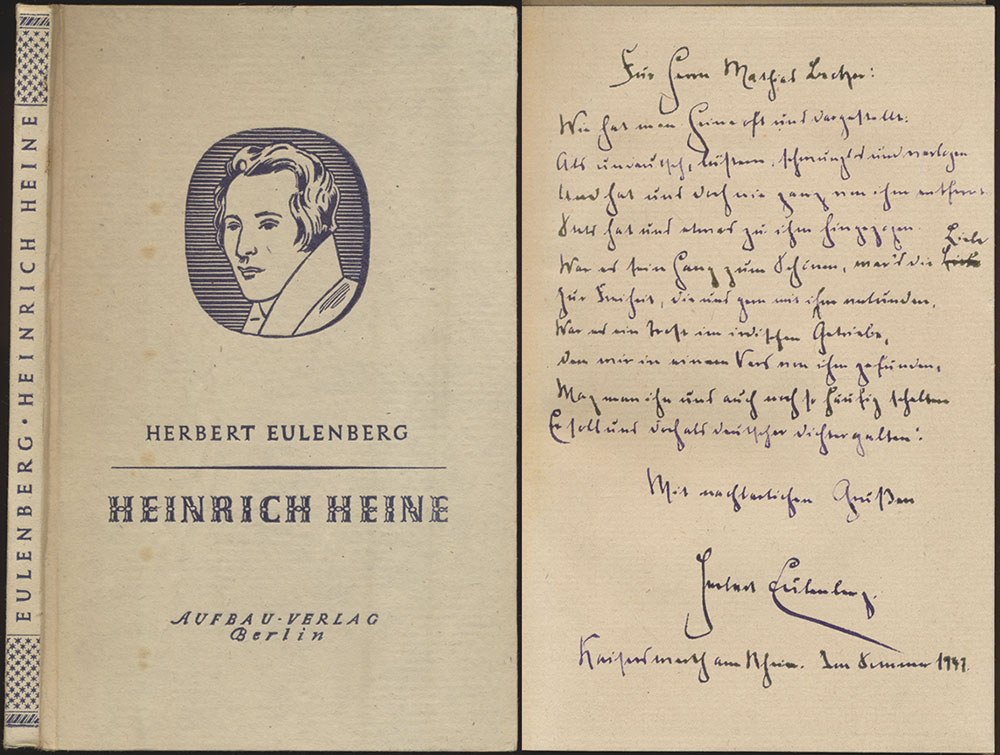 EULENBERG · HEINRICH HEINE
HERBERT EULENBERG
HEINRICH HEINE
AUFBAU-VERLAG
Berlin
Für Herrn Mathias
Wie hat man Heine oft uns dargestellt:
Als undeutsch, lüstern, schwunglos und verlogen
Und hat uns doch nie ganz von ihm entfernt
Stets hat uns etwas zu ihm hingezogen
Liebe
War es sein Hang zum Schönen, war's die
Zur Freiheit, die uns gern mit ihm verbunden,
War es ein Trost im irdischen Getriebe,
den wir in einem Vers von ihm gefunden,
Mag man ihn uns auch noch so häufig schelten
Er soll uns doch als deutscher Dichter gelten!
Mit nachbarlichen Grüßen
Herbert Eulenberg.
Kaiserswerth am Rhein. Im Sommer